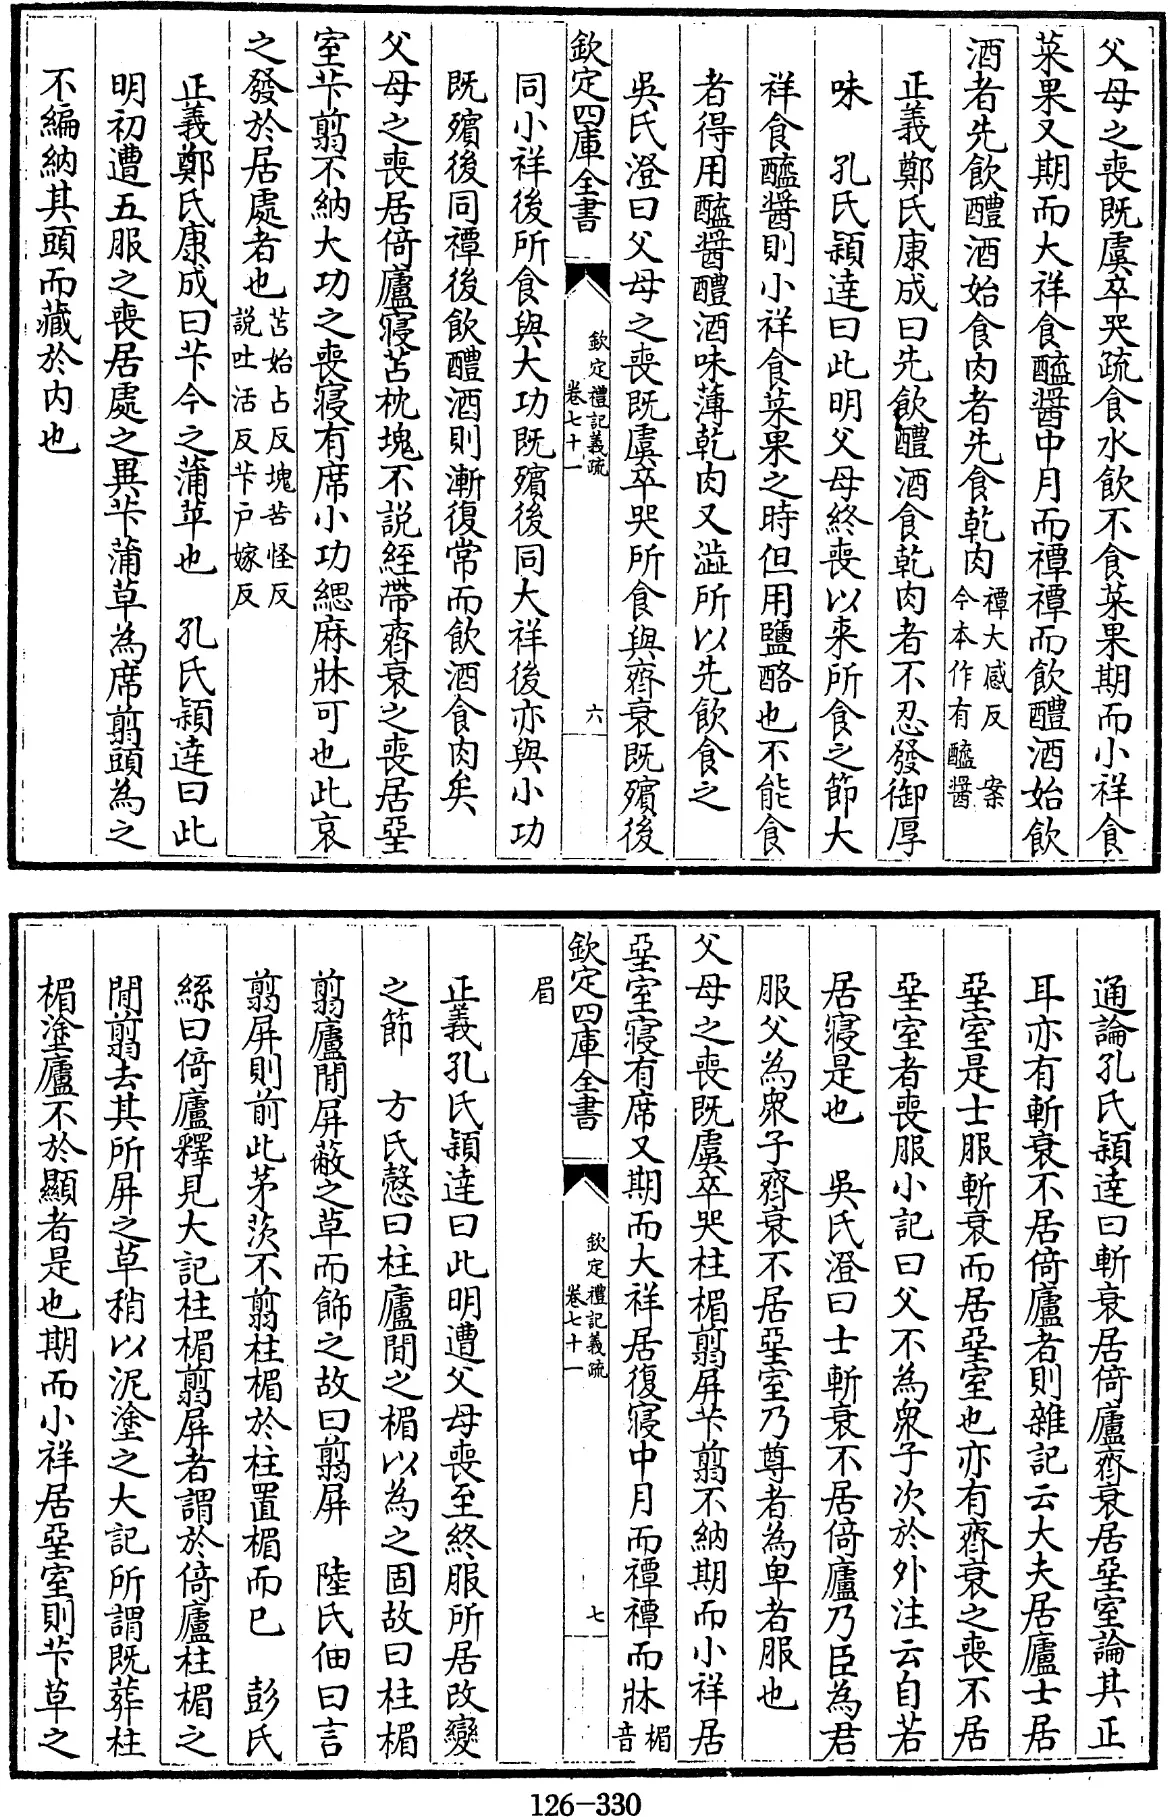 父母之喪既虞卒哭疏食水飲不食菜果期而小祥食
菜果又期而大祥食醯醬中月而禫禫而飲醴酒始飲
酒者先飲醴酒始食肉者先食乾肉禫大感反 案今本作有醯醬
正義鄭氏康成曰先飲醴酒食乾肉者不忍發御厚
味 孔氏穎達曰此明父母終喪以來所食之節大
祥食醯醬則小祥食菜果之時但用鹽酪也不能食
者得用醯醬醴酒味薄乾肉又澁所以先飲食之
吳氏澄曰父母之喪既虞卒哭所食與齊衰既殯後
欽定四庫全書 欽定禮記義疏 卷七十一 六
同小祥後所食與大功既殯後同大祥後亦與小功
既殯後同禫後飲醴酒則漸復常而飲酒食肉矣
父母之喪居倚廬寢苫枕塊不說絰帶齊衰之喪居堊
室芐翦不納大功之喪寢有席小功緦麻牀可也此哀
之發於居處者也苫始占反塊苦怪反說吐活反芐戶嫁反
正義鄭氏康成曰芐今之蒲苹也 孔氏穎達曰此
明初遭五服之喪居處之異芐蒲草為席翦頭為之
不編納其頭而藏於內也
通論孔氏穎達曰斬衰居倚廬齊衰居堊室論其正
耳亦有斬衰不居倚廬者則雜記云大夫居廬士居
堊室是士服斬衰而居堊室也亦有齊衰之喪不居
堊室者喪服小記曰父不為衆子次於外注云自若
居寢是也 吳氏澄曰士斬衰不居倚廬乃臣為君
服父為衆子齊衰不居堊室乃尊者為卑者服也
父母之喪既虞卒哭柱楣翦屏芐翦不納期而小祥居
堊室寢有席又期而大祥居復寢中月而禫禫而牀楣音
欽定四庫全書 欽定禮記義疏 卷七十一 七
眉
正義孔氏穎達曰此明遭父母喪至終服所居改變
之節 方氏慤曰柱廬閒之楣以為之固故曰柱楣
翦廬閒屏蔽之草而飾之故曰翦屏 陸氏佃曰言
翦屏則前此茅茨不翦柱楣於柱置楣而已 彭氏
絲曰倚廬釋見大記柱楣翦屏者謂於倚廬柱楣之
閒翦去其所屏之草稍以泥塗之大記所謂既葬柱
楣塗廬不於顯者是也期而小祥居堊室則芐草之
126-330